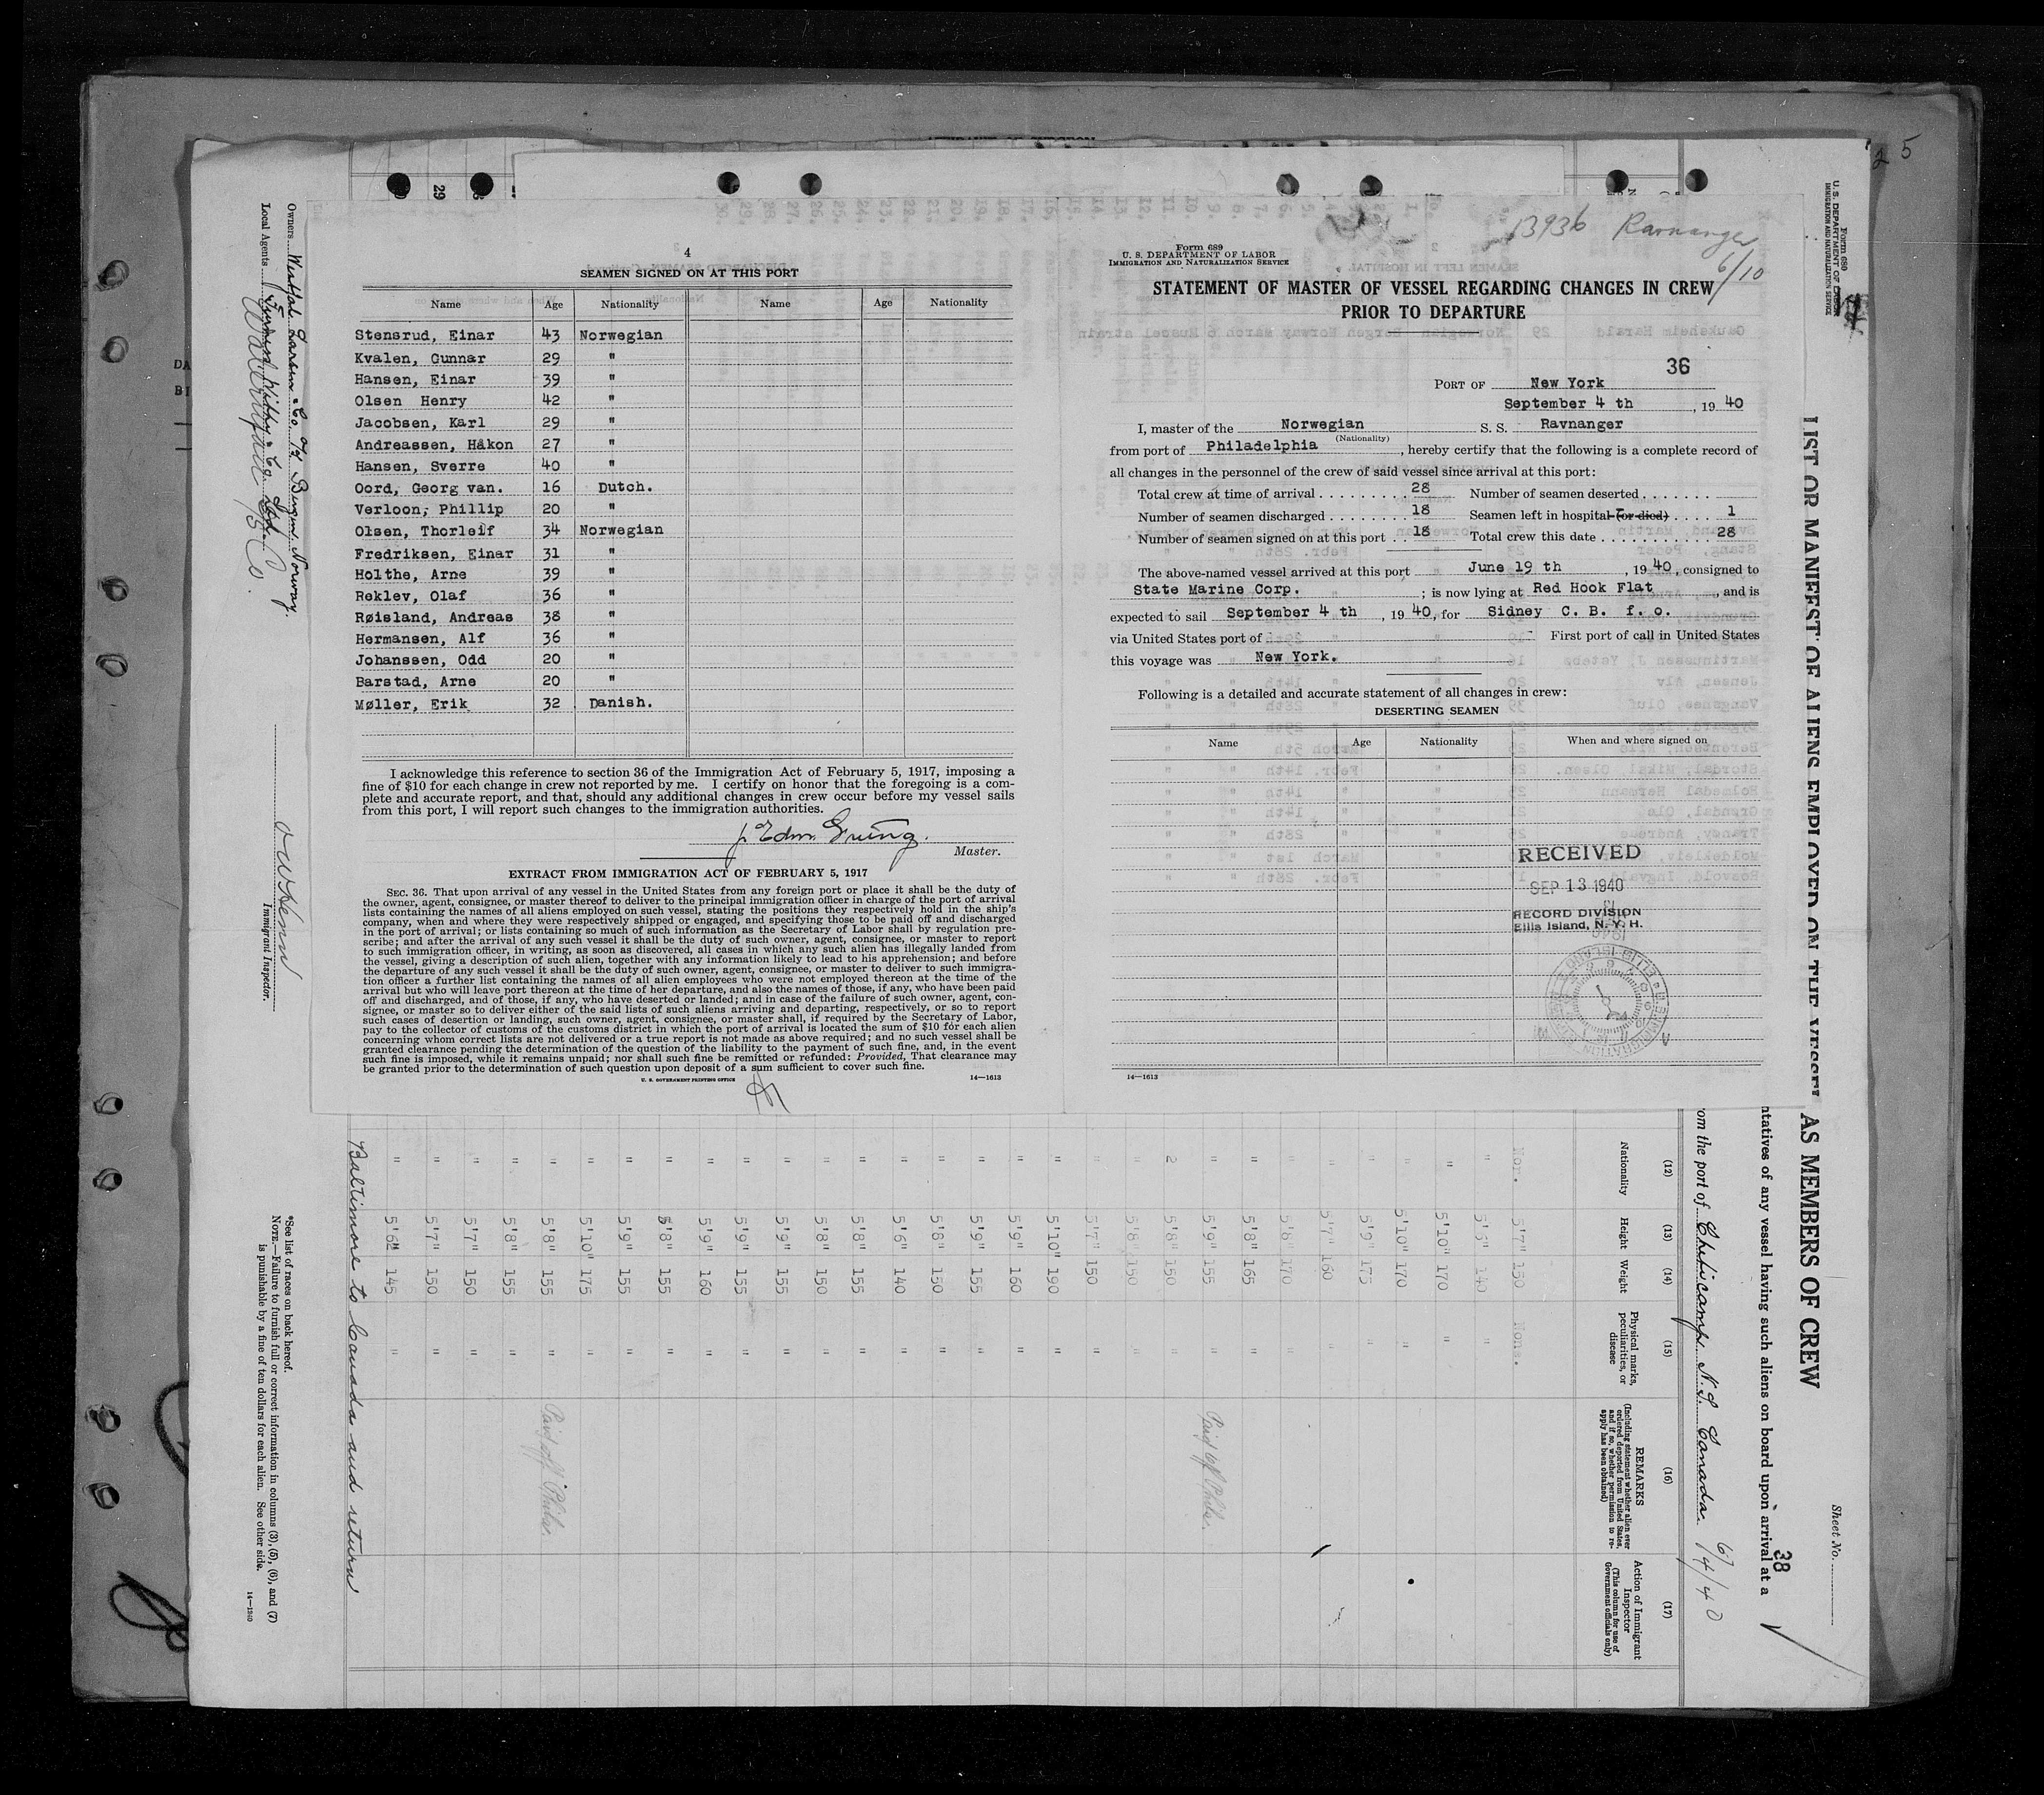 2 5
13936 Ravnanger
6/10
4
SEAMEN SIGNED ON AT THIS PORT
Name Age Nationality Name Age Nationality
Stensrud, Einar 43 Norwegian
Kvalen, Gunnar 29 "
Hansen, Einar 39 "
Olsen Henry 42 "
Jacobsen, Karl 29 "
Andreassen, Håkon 27 "
Hansen, Sverre 40 "
Oord, Georg van. 16 Dutch.
Verloon, Phillip 20 "
Olsen, Thorleif 34 Norwegian
Fredriksen, Einar 31 "
Holthe, Arne 39 "
Reklev, Olaf 36 "
Røisland, Andreas 38 "
Hermansen, Alf 36 "
Johanssen, Odd 20 "
Barstad, Arne 20 "
Møller, Erik 32 Danish.
I acknowledge this reference to section 36 of the Immigration Act of February 5, 1917, imposing a
fine of $10 for each change in crew not reported by me. I certify on honor that the foregoing is a com-
plete and accurate report, and that, should any additional changes in crew occur before my vessel sails
from this port, I will report such changes to the immigration authorities.
Master.
EXTRACT FROM IMMIGRATION ACT OF FEBRUARY 5, 1917
SEC. 36. That upon arrival of any vessel in the United States from any foreign port or place it shall be the duty of
the owner, agent, consignee, or master thereof to deliver to the principal immigration officer in charge of the port of arrival
lists containing the names of all aliens employed on such vessel, stating the positions they respectively hold in the ship's
company, when and where they were respectively shipped or engaged, and specifying those to be paid off and discharged
in the port of arrival; or lists containing so much of such information as the Secretary of Labor shall by regulation pre-
scribe; and after the arrival of any such vessel it shall be the duty of such owner, agent, consignee, or master to report
to such immigration officer, in writing, as soon as discovered, all cases in which any such alien has illegally landed from
the vessel, giving a description of such alien, together with any information likely to lead to his apprehension; and before
the departure of any such vessel it shall be the duty of such owner, agent, consignee, or master to deliver to such immigra-
tion officer a further list containing the names of all alien employees who were not employed thereon at the time of the
arrival but who will leave port thereon at the time of her departure, and also the names of those, if any, who have been paid
off and discharged, and of those, if any, who have deserted or landed; and in case of the failure of such owner, agent, con-
signee, or master so to deliver either of the said lists of such aliens arriving and departing, respectively, or so to report
such cases of desertion or landing, such owner, agent, consignee, or master shall, if required by the Secretary of Labor,
pay to the collector of customs of the customs district in which the port of arrival is located the sum of $10 for each alien
concerning whom correct lists are not delivered or a true report is not made as above required; and no such vessel shall be
granted clearance pending the determination of the question of the liability to the payment of such fine, and, in the event
such fine is imposed, while it remains unpaid; nor shall such fine be remitted or refunded: Provided, That clearance may
be granted prior to the determination of such question upon deposit of a sum sufficient to cover such fine.
U. S. GOVERNMENT PRINTING OFFICE 14—1613
Form 689
U. S. DEPARTMENT OF LABOR
IMMIGRATION AND NATURALIZATION SERVICE
STATEMENT OF MASTER OF VESSEL REGARDING CHANGES IN CREW
PRIOR TO DEPARTURE
36
PORT OF New York
September 4 th, 19 40
I, master of the Norwegian S. S. Ravnanger
(Nationality)
from port of Philadelphia, hereby certify that the following is a complete record of
all changes in the personnel of the crew of said vessel since arrival at this port:
Total crew at time of arrival 28 Number of seamen deserted
Number of seamen discharged 18 Seamen left in hospital (or died) 1
Number of seamen signed on at this port 18 Total crew this date 28
The above-named vessel arrived at this port June 19 th, 19 40, consigned to
State Marine Corp.; is now lying at Red Hook Flat, and is
expected to sail September 4 th, 19 40, for Sidney C. B. f. o.
via United States port of - First port of call in United States
this voyage was New York.
Following is a detailed and accurate statement of all changes in crew:
DESERTING SEAMEN
Name Age Nationality When and where signed on
RECEIVED
SEP 13 1940
RECORD DIVISION
Ellis Island, N. Y. H.
14—1613
Form 689
U. S. DEPARTMENT OF LABOR
IMMIGRATION AND NATURALIZATION SERVICE
Sheet No.
LIST OR MANIFEST OF ALIENS EMPLOYED ON THE VESSEL AS MEMBERS OF CREW
ntatives of any vessel having such aliens on board upon arrival at a
38
om the port of Cheticamp N.S. Canada. 6/4/40
(12) (13) (14) (15) (16) (17)
Nationality Height Weight Physical marks, peculiarities, or disease
REMARKS
(Including statement whether alien ever ordered deported from United States, and if so, whether permission to re-apply has been obtained)
Action of Immigrant Inspector
(This column for use of Government officials only)
Nor. 5'7" 150 None.
" 5'5" 140 "
" 5'10" 170 "
" 5'10" 170 "
" 5'9" 175 "
" 5'7" 160 "
" 5'8" 170 "
" 5'8" 165 "
" 5'9" 155 " Paid off Phila.
" 5'8" 150 "
" 5'8" 150 "
" 5'7" 150 "
" 5'10" 190 "
" 5'9" 160 "
" 5'9" 155 "
" 5'8" 150 "
" 5'6" 140 "
" 5'8" 155 "
" 5'8" 150 "
" 5'9" 155 "
" 5'9" 155 "
" 5'9" 160 "
" 5'8" 155 "
" 5'9" 155 "
" 5'10" 175 "
" 5'8" 155 " Paid off Phila.
" 5'8" 155 "
" 5'7" 150 "
" 5'7" 150 "
" 5'6" 145 "
Baltimore to Canada and return
Owners Westfal Larsen & Co A/S Bergen, Norway.
Local Agents
Immigrant Inspector.
*See list of races on back hereof.
NOTE.—Failure to furnish full or correct information in columns (3), (5), (6), and (7)
is punishable by a fine of ten dollars for each alien. See other side.
14—1240